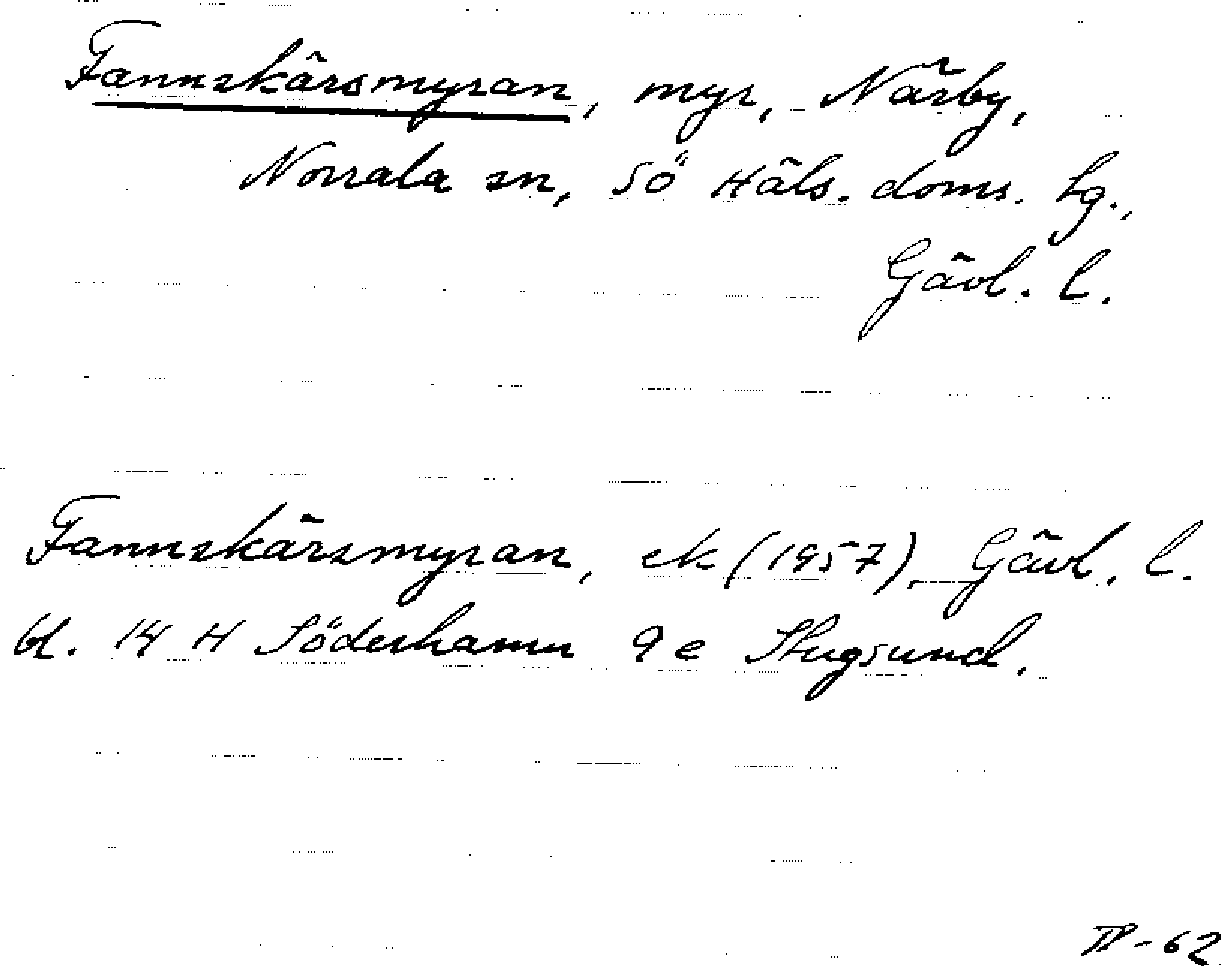 Fannskärsmyran, myr, Närby,
Norrala sn, Sö Häls. doms. lg.,
Gävl. l.
Fannskärsmyran, ek (1957) Gävl. l.
bl. 14 H Söderhamn 9 e Stugsund.
-62